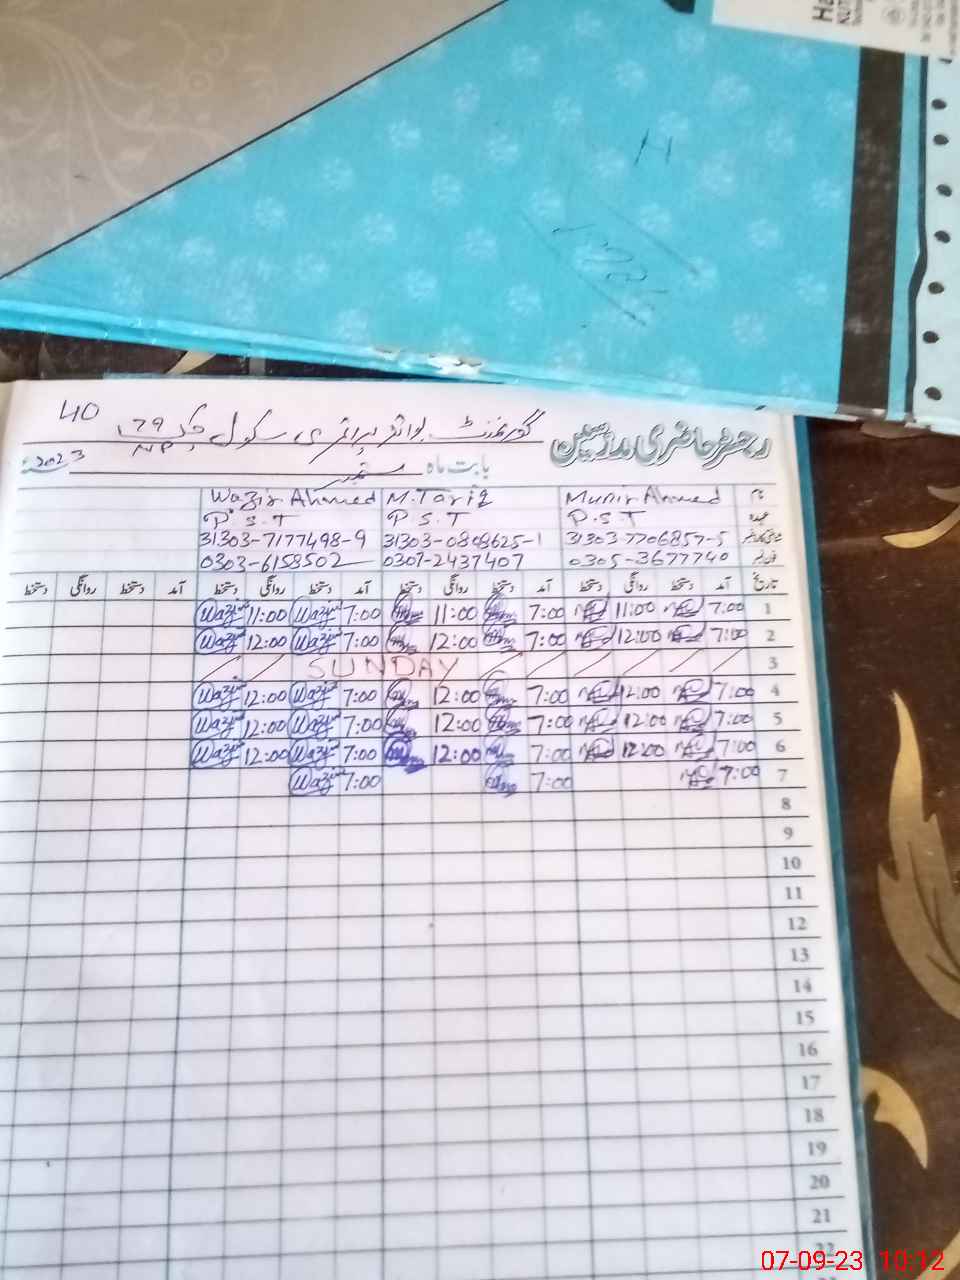 H
40
گورنمنٹ بوائز پرائمری سکول چک 179
NP
رجسٹر حاضری مدرسین
بابت ماہ ستمبر 2023
نام Munir Ahmed M. Tariq Wazir Ahmed
عہدہ P.S.T P.S.T P.S.T
31303-7706857-5 31303-0808625-1 31303-7177498-9
0305-3677740 0307-2437407 0303-6158502
تاریخ آمد دستخط روانگی دستخط آمد دستخط روانگی دستخط آمد دستخط روانگی دستخط آمد دستخط روانگی دستخط
1 7:00 11:00 7:00 11:00 7:00 Wazir 11:00 Wazir
2 7:00 12:00 7:00 12:00 7:00 Wazir 12:00 Wazir
3 SUNDAY
4 7:00 12:00 7:00 12:00 7:00 Wazir 12:00 Wazir
5 7:00 12:00 7:00 12:00 7:00 Wazir 12:00 Wazir
6 7:00 12:00 7:00 12:00 7:00 Wazir 12:00 Wazir
7 7:00 7:00 7:00 Wazir
8
9
10
11
12
13
14
15
16
17
18
19
20
21
22
07-09-23 10:12